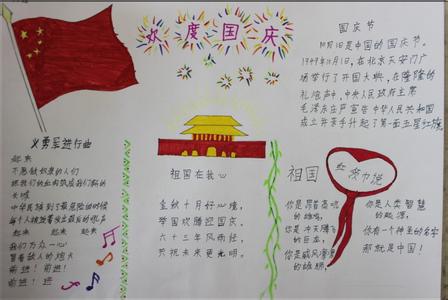 欢度国庆
国庆节
10月1日是中国的国庆节。
1949年10月1日,在北京天安门广
场举行了开国大典,在隆隆的
礼炮声中,中央人民政府主席
毛泽东庄严宣告中华人民共和国
成立并亲手升起了第一面五星红旗
义勇军进行曲
起来
不愿做奴隶的人们
把我们的血肉筑成我们新的
长城
中华民族到了最危险的时候
每个人被迫着发出最后的吼声
起来 起来 起来
我们万众一心
冒着敌人的炮火
前进!前进!
前进!进
祖国在我心
金秋十月好心境,
举国欢腾迎国庆。
六十三年风雨征,
共祝未来更光明。
祖国
红领巾说
你是昂首高吭
的雄鸡,
你是冲天腾飞
的巨龙,
你是威风凛凛
的雄狮,
你是人类智慧
的起源,
你有一个神圣的名字
那就是中国!